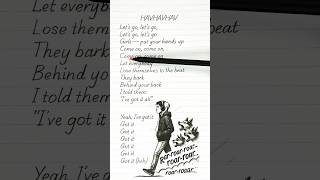 HAVHAVHAV
Let's go, let's go,
Let's go, let's go
Girls — put your hands up
Come on, come on,
Come on, come on
Let everybody
Lose themselves to the beat
They bark
Behind your back
I told them:
"I've got it all"
Yeah, I've got it
Got it
Got it
Got it
Got it
Got it
Got it (huh)
roar-roar-
roar-roar...
roar-roar...
Let everyb
Lose them
They bark
Behind you
I told them
"I've got it
Yeah, I've
Got it